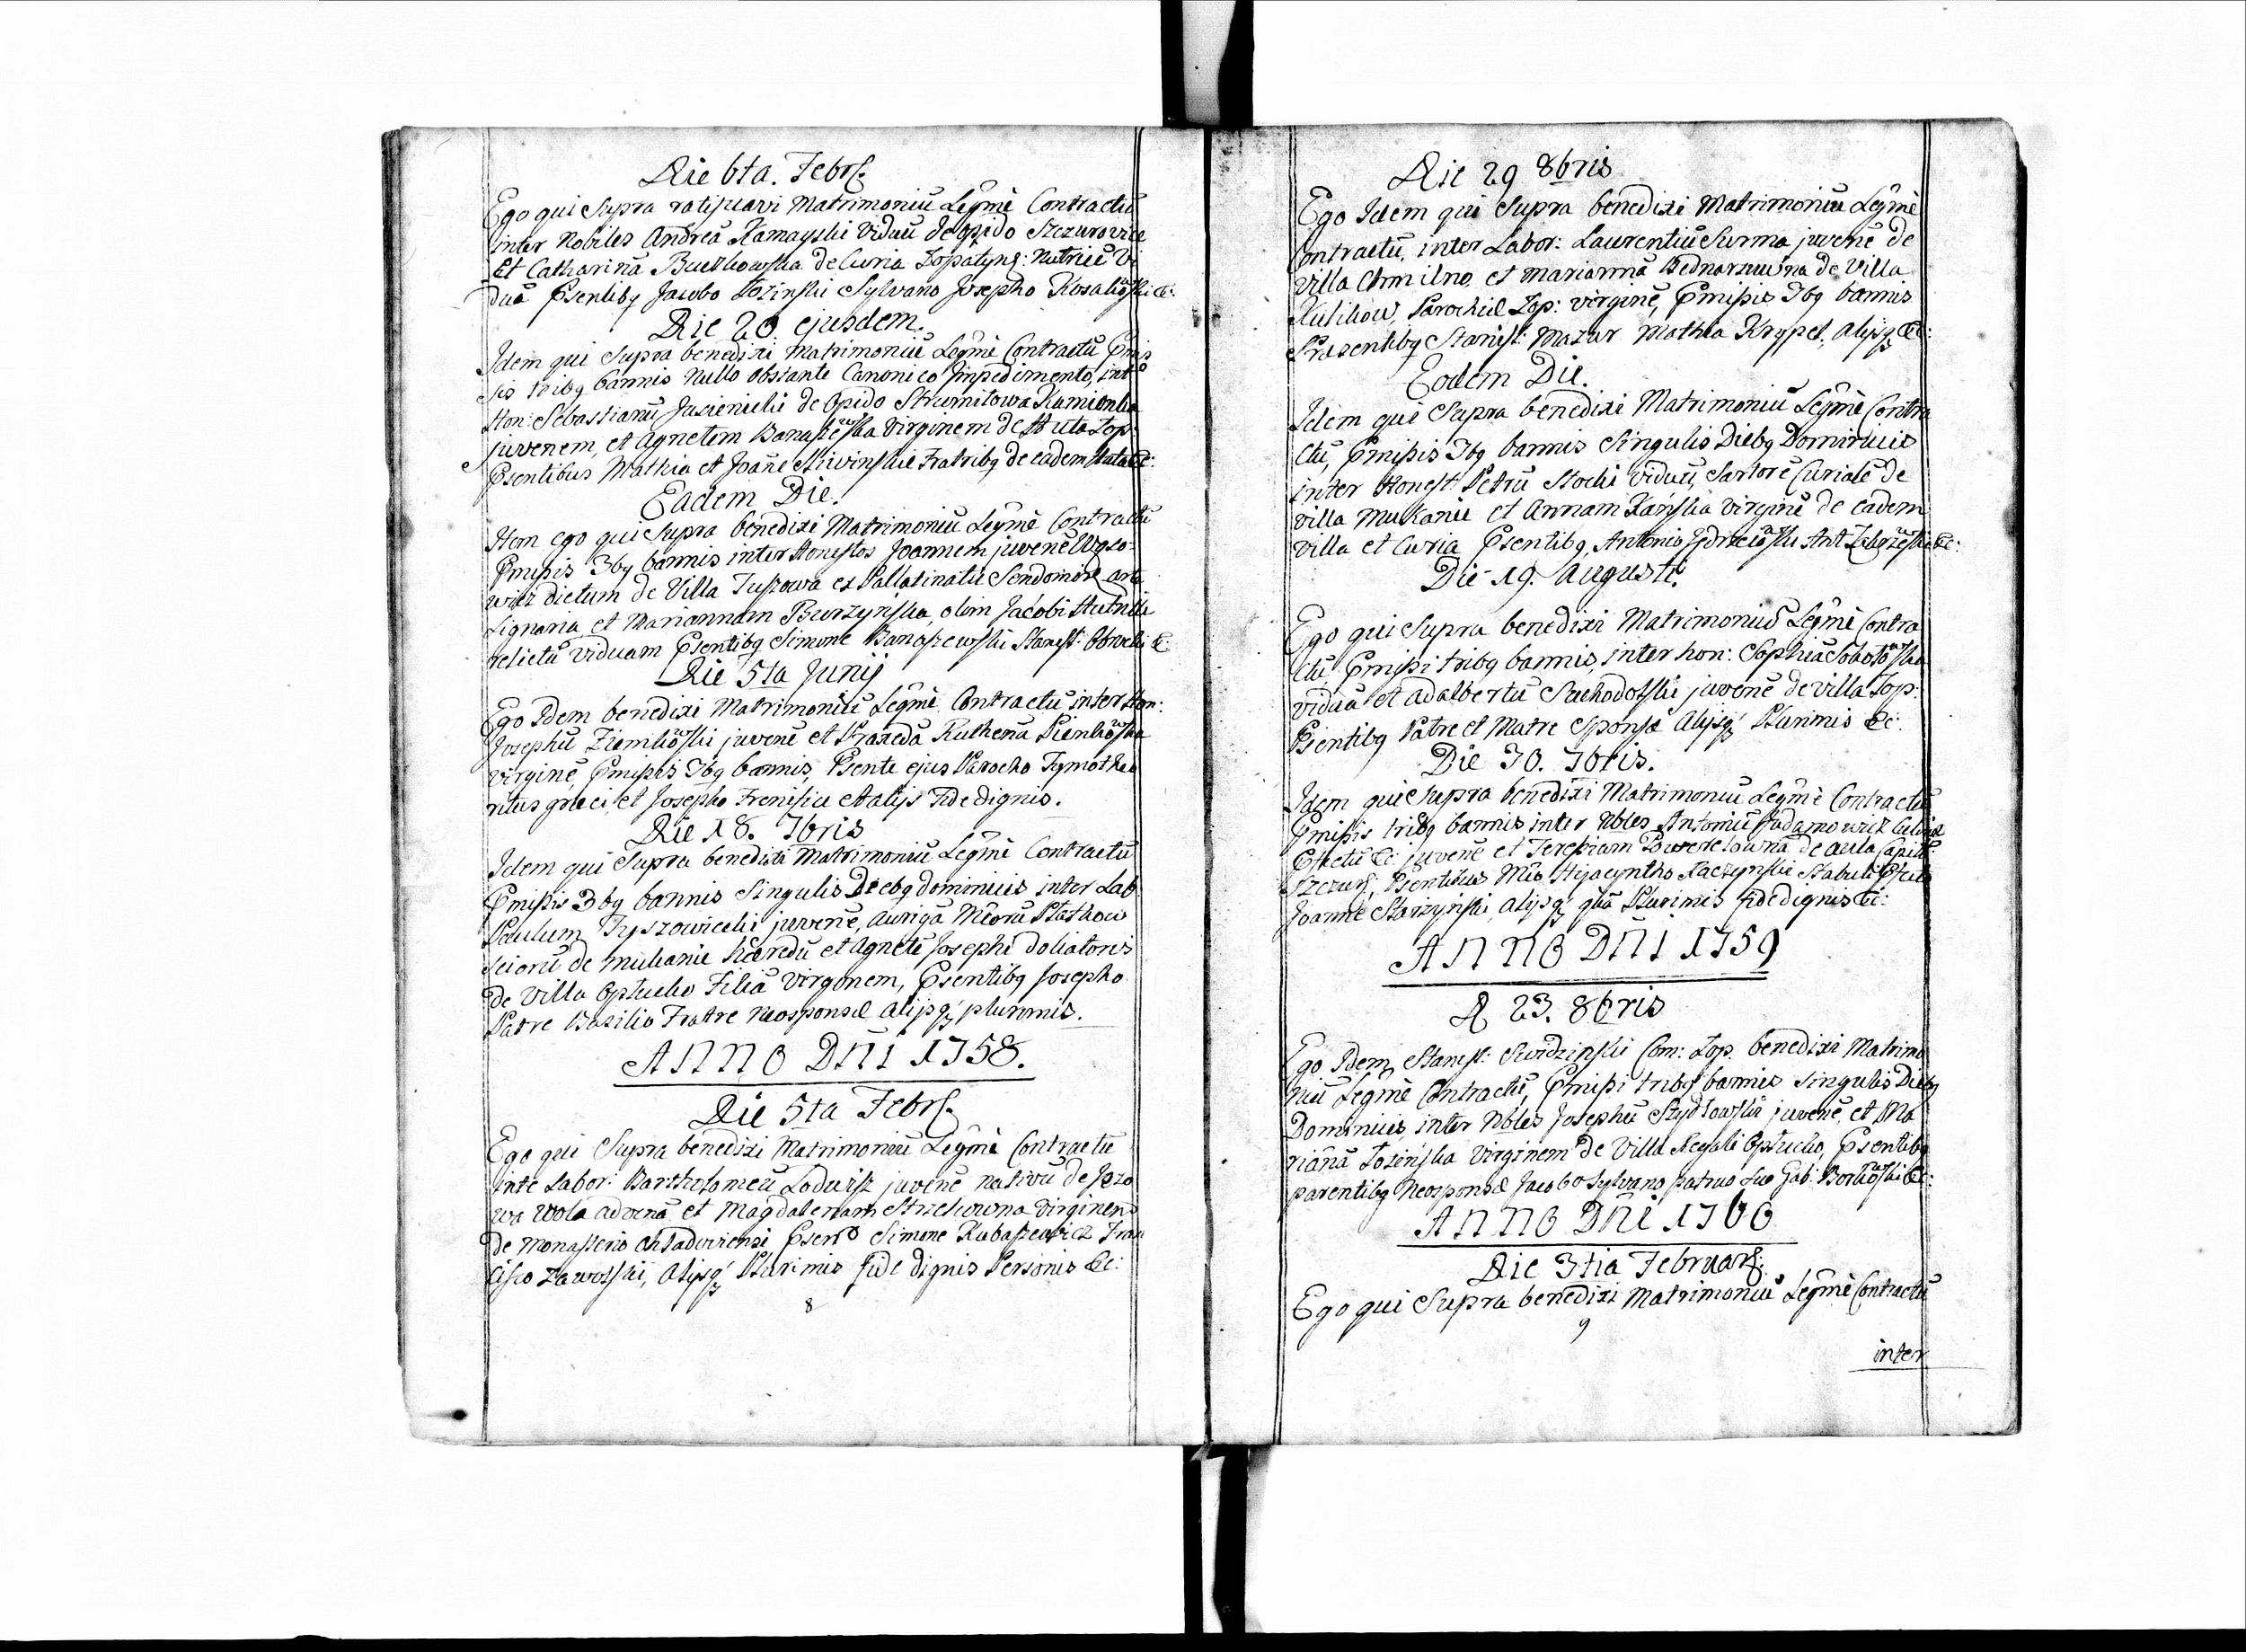 Die 6ta. Febr:
Ego qui Supra ratificavi Matrimoniū Legmè Contractū
inter Nobiles Andreā Kamayski Viduū de opido Szczurovice
Et Catharinā Buczkowska de Curia Lopatyns: Nutricē Vi
duā Psentibg Jacobo Łozinski Sylvano Josepho Rosalio̅ski &c:
Die 20 ejusdem.
Idem qui Supra benedixi Matrimoniū Legmè Contractū Pmis
sis tribg bannis Nullo Obstante Canonico Impedimento, inter
Hon: Sebastianū Jasienicki de Opido Strumitowa Kamionka
juvenem, et Agnetem Banaszewska Virginem de Huta Lop:
Psentibus Mathia et Joañe Skivinskie Fratribg de eadem Huta &c:
Eadem Die.
Item ego qui Supra benedixi Matrimoniū Legmè Contractū
Pmissis 3bg bannis inter Honestos Joannem juvenē
wicz dictum de Villa Tuszowa ex Pallatinatu Sendomire arte
Lignaria et Mariannam Burzynska, olim Jacobi Hutnik
relictā viduam Psentibg Simone Banaszewski Stanisl:
Die 5ta Junij
Ego Idem benedixi Matrimoniū Legmè Contractū inter Hon:
Josephū Ziembo̅ski juvenē et Praxedā Ruthenā Pienko̅ska
virginē, Pmissis 3bg bannis, Psente ejus Parocho Tymotheo
ritus graeci, et Josepho Frenisiu et alijs Fide dignis.
Die 18. 7bris
Idem qui Supra benedixi Matrimoniū Legmè Contractū
Pmissis 3bg bannis Singulis Diebg dominicis inter Lab:
Paulum Tyszowiecki juvenē, Aurigā
de Mukanie Haeredū et Agnetē Josephi doliatoris
de Villa Opłucko Filiā Virginem, Psentibg Josepho
Patre Basilio Fratre Neosponsae Alijsq plurimis.
ANNO DNI 1758.
Die 5ta Febr:
Ego qui Supra benedixi Matrimoniū Legmè Contractū
inte Labor: Bartholomeū Lodwisz juvenē nativū de
wa Wola advenā et Magdalenam Strzelcowna Virginem
de Monasterio Simone Kubaszewicz Fran
cisco Zawolski, Alijsq Plurimis fide dignis Personis &c:
8
Die 29 8bris
Ego Idem qui Supra benedixi Matrimoniū Legmè
Contractū, inter Labor: Laurentiū Surma juvenē de
villa Chmilno, et Mariannā Bednarzuwna de Villa
Kulikow, Parochiae Lop: virginē, Pmissis 3bg bannis
Praesentibg Stanisl: Mazur Mathia Krypel, Alijsq &c:
Eodem Die.
Idem qui Supra benedixi Matrimoniū Legmè Contra
ctū, Pmissis 3bg bannis Singulis Diebg Dominicis
inter Honest: Petrū Stocki Viduū, Sartorē Curialē de
villa Mukanie et Annam Kańska virginē de eadem
villa et Curia Psentibg, Antonio Ant: &c:
Die 19. Augusti.
Ego qui Supra benedixi Matrimoniū Legmè Contra
ctū Pmissi tribg bannis, inter hon: Sophiā Soboto̅ska
viduā et Adalbertū Suchodolski juvenē de villa Lop:
Psentibg Patre et Matre Sponsae Alijsq Plurimis &c:
Die 30. 7bris.
Idem qui Supra benedixi Matrimoniū Legmè Contractū
Pmissis tribg bannis inter Nbles Antoniū Judamowicz
juvenē et Teressiam de aula
Szczur:, Psentibus Hyacyntho Kaczynskie Stabuli
Joanne Starzynski, Alijsq Plurimis fide dignis &c:
ANNO DNI 1759
D 23. 8bris
Ego Idem Stanisl: Swidzinski Com: Lop. benedixi Matrimo
niū Legmè Contractū, Pmissi tribg bannis Singulis Diebg
Dominicis, inter Nbles Josephū Szydłowski juvenē, et Ma
riānā Łozińska Virginem de Villa Regali Opłucko, Psentibg
parentibg Neosponsae Jacobo Sylvano patruo suo Gab: Borko̅ski &c:
ANNO DNI 1760
Die 3tia Februar:
Ego qui Supra benedixi Matrimoniū Legmè Contractū
9
inter